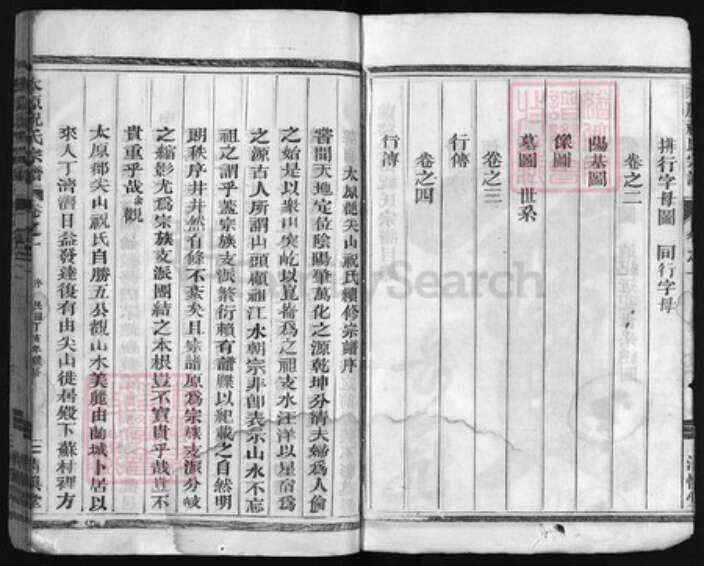 排行字母圖 同行字母
卷之二
陽基圖
像圖
墓圖 世系
卷之三
行傳
卷之四
行傳
太原郡尖山祝氏續修宗譜序
嘗聞天地定位陰陽肇萬化之源乾坤分淸夫婦爲人倫
之始是以衆山突屹以崑崙爲之祖支水汪洋以星宿爲
之源古人所謂山頭顧祖江水朝宗非卽表示山水不忘
祖之謂乎蓋宗族支派繁衍賴有譜牒以紀載之自然明
明秩序井井然有條不紊矣且宗譜原爲宗族支派分岐
之縮影尤爲宗族支派團結之本根豈不寶貴乎哉豈不
貴重乎哉余觀
太原郡尖山祝氏自勝五公觀山水美麗由蘭城卜居以
來人丁濟濟日益發達復有由尖山徙居殿下蘇村裡方
太原祝氏宗譜 卷之一 序